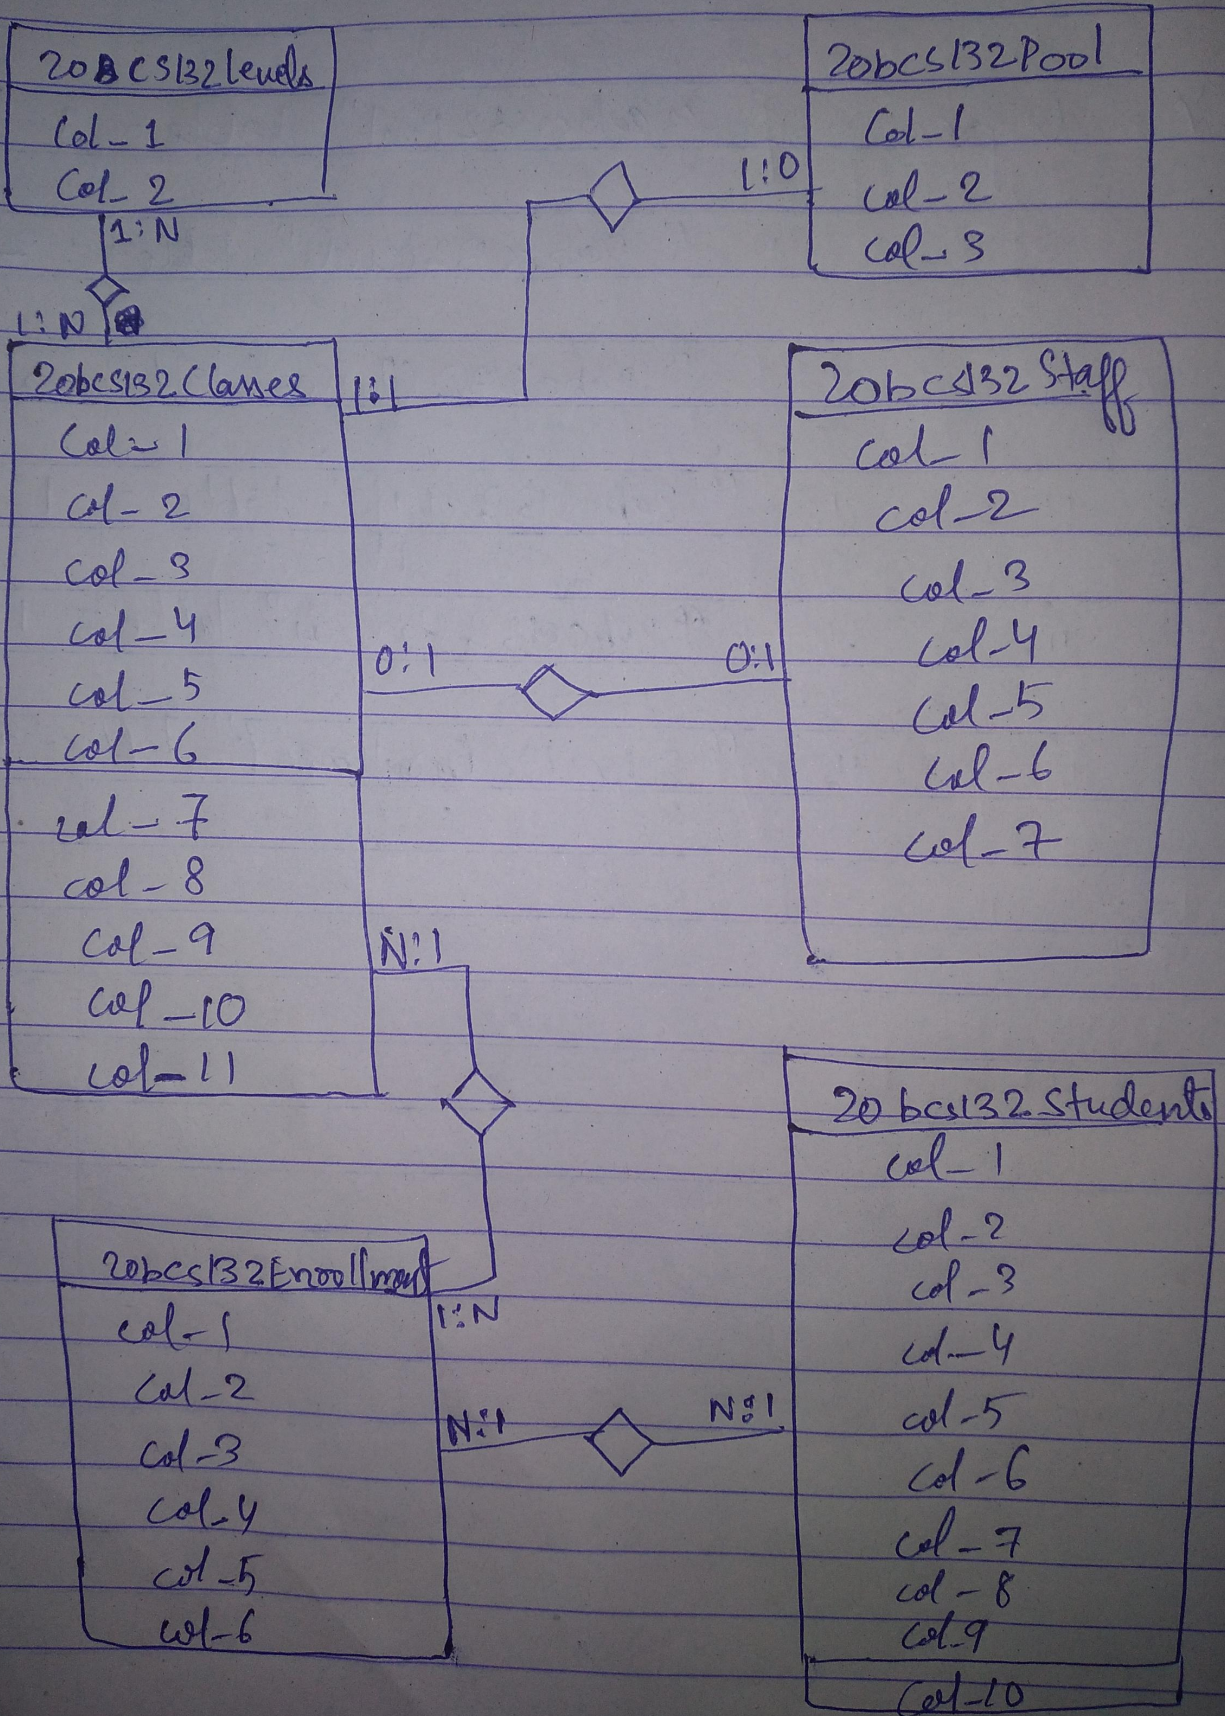 20BCS132levels
Col_1
Col_2
1:N
1:N
20bcs132Pool
Col_1
col_2
col_3
1:0
20bcs132Classes
1:1
Col_1
col_2
col_3
col_4
col_5
col_6
col_7
col_8
col_9
col_10
col_11
0:1
0:1
N:1
20bcs132Staff
col_1
col_2
col_3
col_4
col_5
col_6
col_7
20bcs132Enrollment
1:N
col_1
col_2
col_3
col_4
col_5
col_6
N:1
N:1
20bcs132Students
col_1
col_2
col_3
col_4
col_5
col_6
col_7
col_8
col_9
col_10